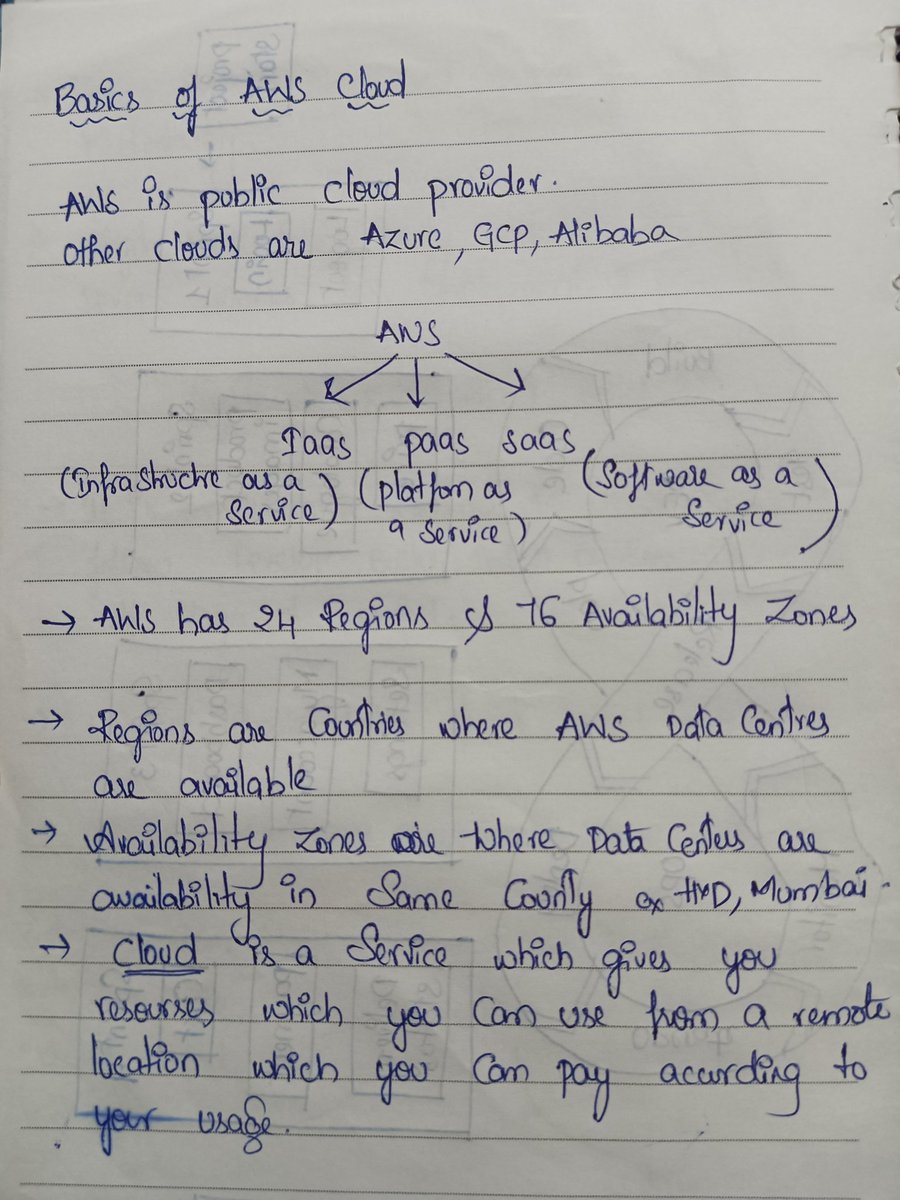 Basics of AWS Cloud
AWS is public cloud provider.
other clouds are Azure, GCP, Alibaba
AWS
Iaas paas saas
(Infrastructre as a service) (platfom as a service) (Software as a service)
→ AWS has 24 Regions & 76 Availability Zones
→ Regions are Countries where AWS Data Centres
are available
→ Availability Zones are where Data Centers are
availability in Same County ex HYD, Mumbai.
→ Cloud is a Service which gives you
resourses which you can use from a remote
location which you can pay acarding to
your usage.